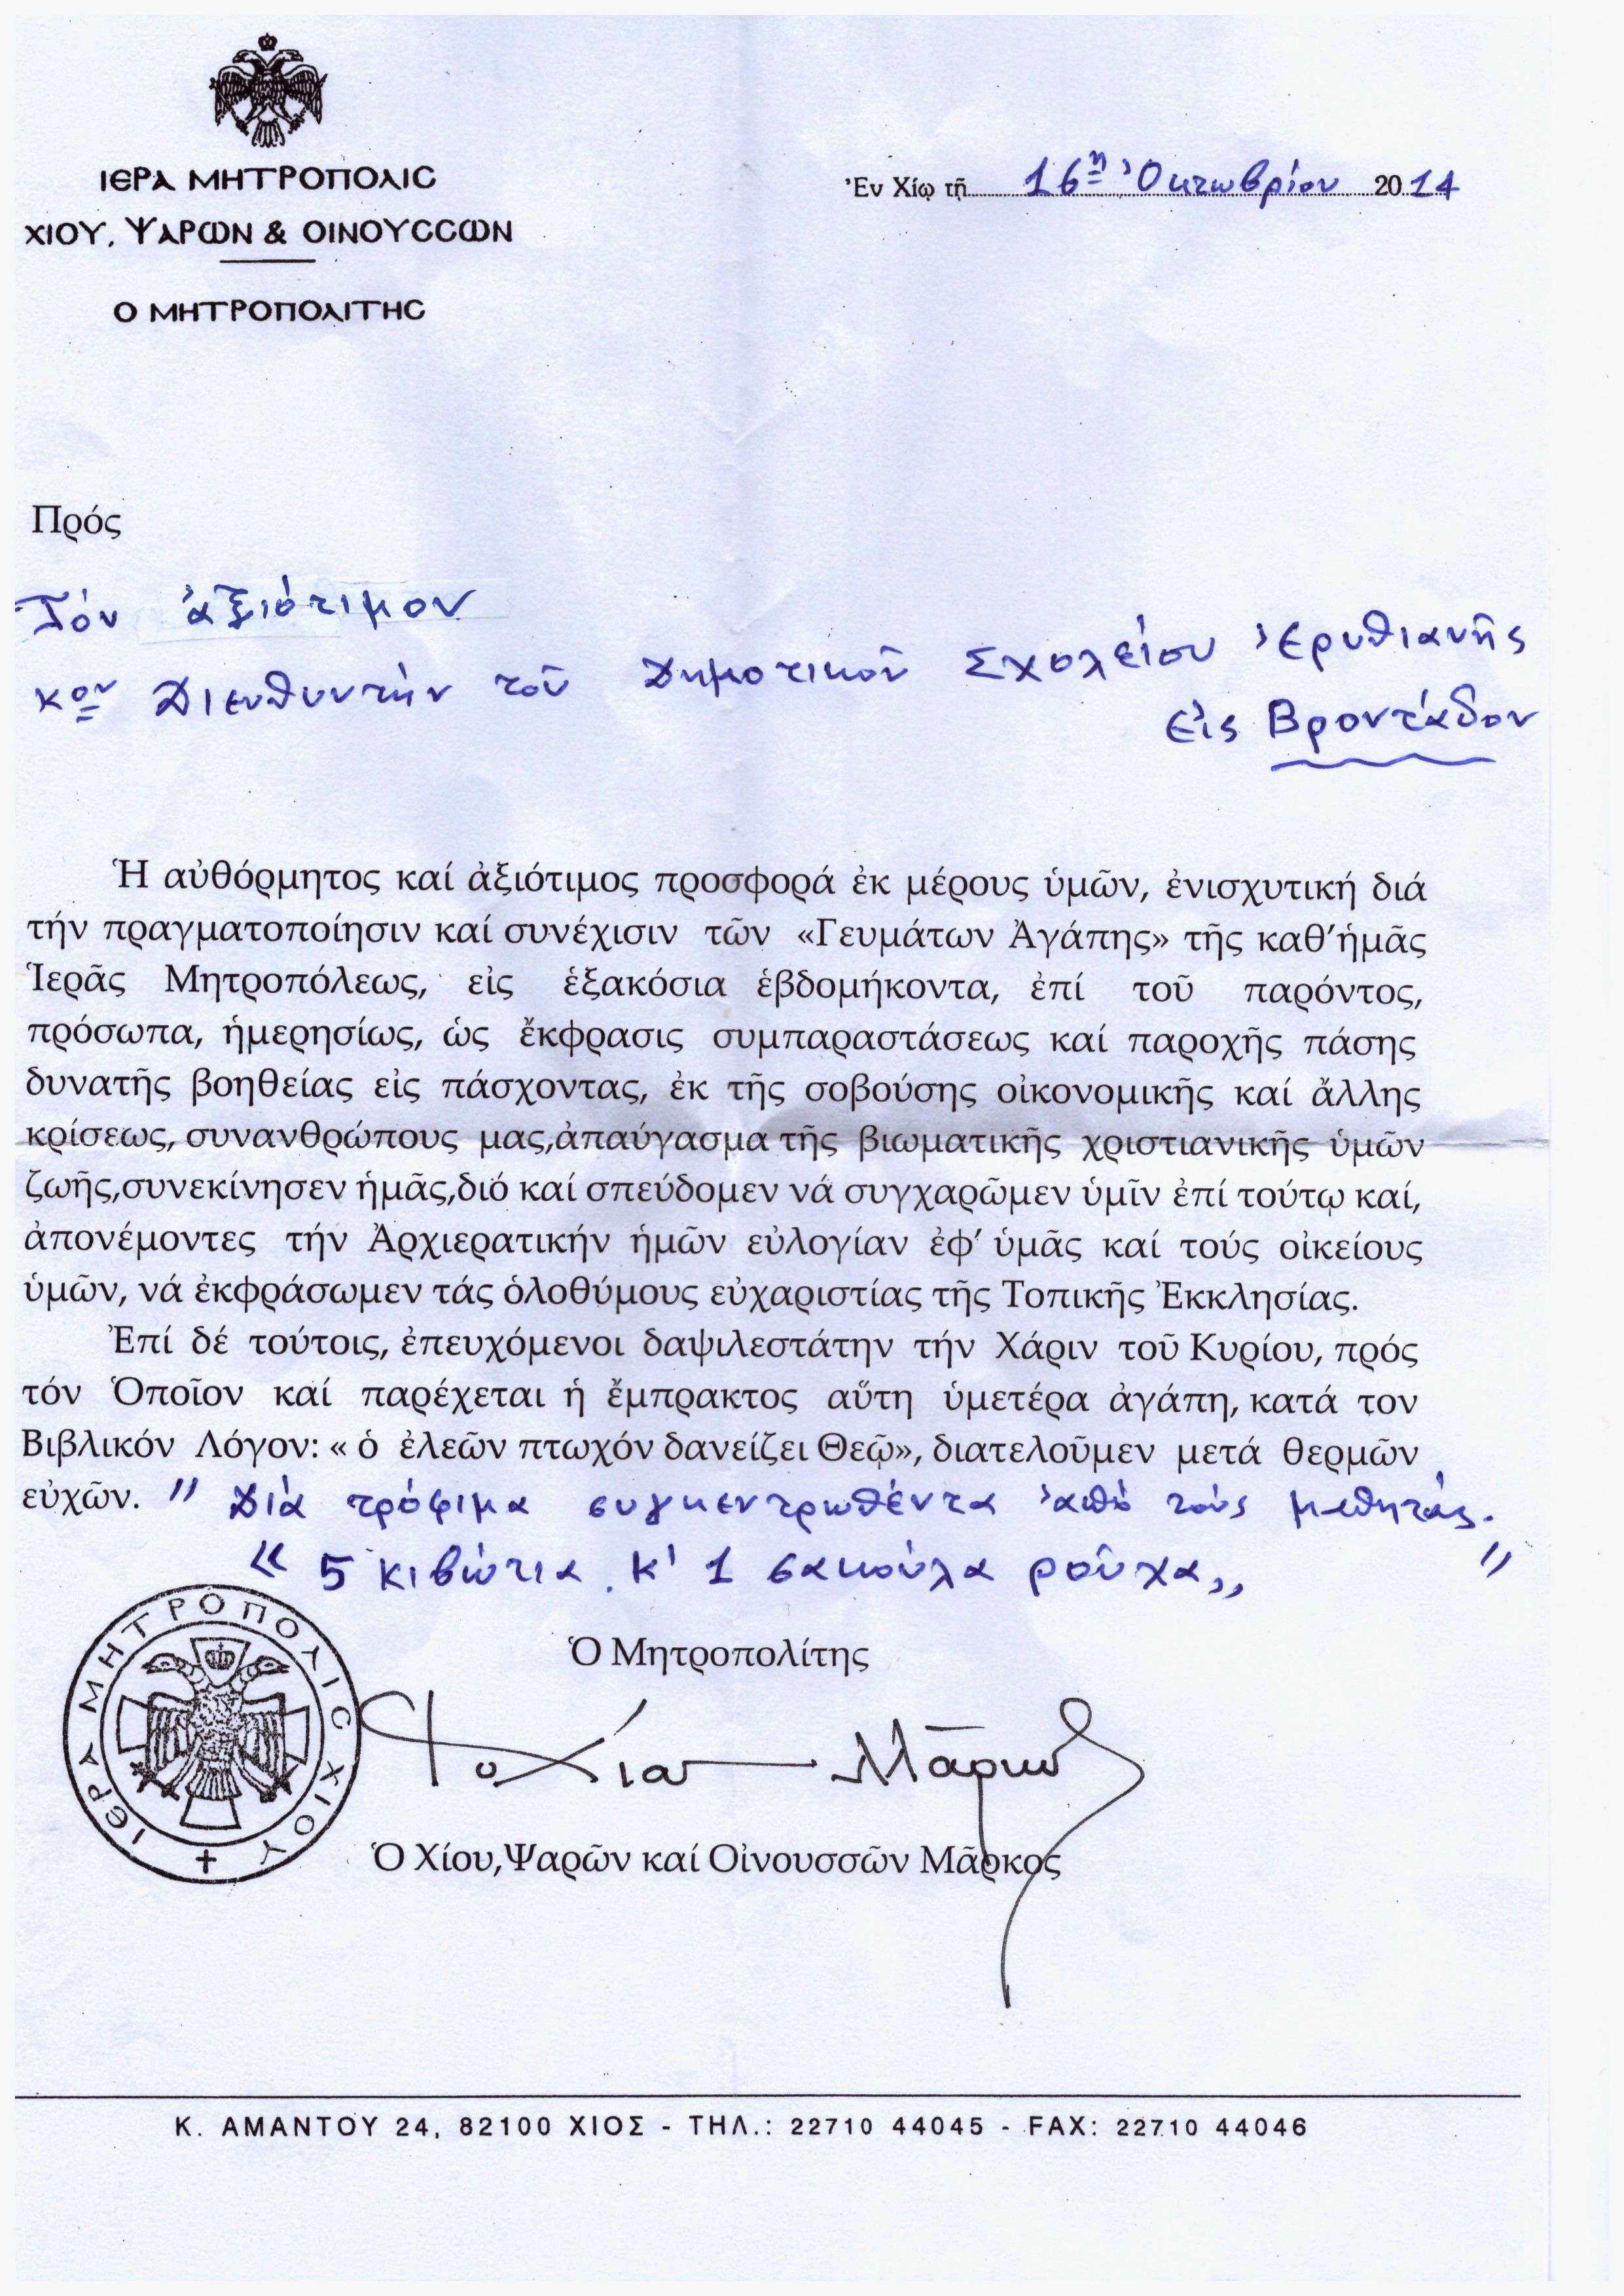 ΙΕΡΑ ΜΗΤΡΟΠΟΛΙΣ
ΧΙΟΥ, ΨΑΡΩΝ & ΟΙΝΟΥΣΣΩΝ
Ο ΜΗΤΡΟΠΟΛΙΤΗΣ
Ἐν Χίῳ τῇ 16ῃ Ὀκτωβρίου 2014
Πρός
Τόν ἀξιότιμον
κον Διευθυντήν τοῦ Δημοτικοῦ Σχολείου Ἐρυθιανῆς
εἰς Βροντάδον
Ἡ αὐθόρμητος καί ἀξιότιμος προσφορά ἐκ μέρους ὑμῶν, ἐνισχυτική διά
τήν πραγματοποίησιν καί συνέχισιν τῶν «Γευμάτων Ἀγάπης» τῆς καθ’ἡμᾶς
Ἱερᾶς Μητροπόλεως, εἰς ἑξακόσια ἑβδομήκοντα, ἐπί τοῦ παρόντος,
πρόσωπα, ἡμερησίως, ὡς ἔκφρασις συμπαραστάσεως καί παροχῆς πάσης
δυνατῆς βοηθείας εἰς πάσχοντας, ἐκ τῆς σοβούσης οἰκονομικῆς καί ἄλλης
κρίσεως, συνανθρώπους μας,ἀπαύγασμα τῆς βιωματικῆς χριστιανικῆς ὑμῶν
ζωῆς,συνεκίνησεν ἡμᾶς,διό καί σπεύδομεν νά συγχαρῶμεν ὑμῖν ἐπί τούτῳ καί,
ἀπονέμοντες τήν Ἀρχιερατικήν ἡμῶν εὐλογίαν ἐφ’ ὑμᾶς καί τούς οἰκείους
ὑμῶν, νά ἐκφράσωμεν τάς ὁλοθύμους εὐχαριστίας τῆς Τοπικῆς Ἐκκλησίας.
Ἐπί δέ τούτοις, ἐπευχόμενοι δαψιλεστάτην τήν Χάριν τοῦ Κυρίου, πρός
τόν Ὁποῖον καί παρέχεται ἡ ἔμπρακτος αὕτη ὑμετέρα ἀγάπη, κατά τον
Βιβλικόν Λόγον: « ὁ ἐλεῶν πτωχόν δανείζει Θεῷ», διατελοῦμεν μετά θερμῶν
εὐχῶν. " Διά τρόφιμα συγκεντρωθέντα ἀπό τούς μαθητάς. "
« 5 κιβώτια κ' 1 σακούλα ροῦχα„
Ὁ Μητροπολίτης
† ὁ Χίου Μᾶρκος
Ὁ Χίου,Ψαρῶν καί Οἰνουσσῶν Μᾶρκος
ΙΕΡΑ ΜΗΤΡΟΠΟΛΙΣ ΧΙΟΥ
Κ. ΑΜΑΝΤΟΥ 24, 82100 ΧΙΟΣ - ΤΗΛ.: 22710 44045 - FAX: 22710 44046